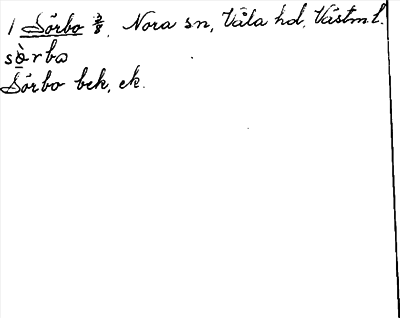 1 Sörbo 3/8. Nora sn, Våla hd, Västm l.
sö̀rbω
Sörbo bek, ek.